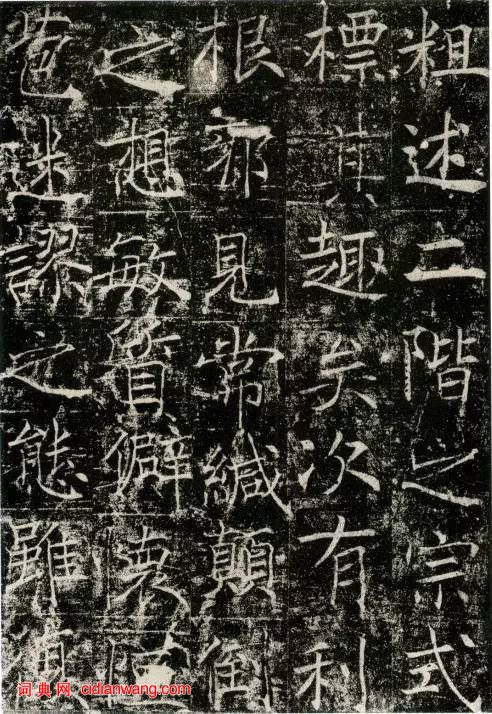 粗述二階之宗式
標其趣矣次有利
根邪見常緘顛倒
之想敏質僻
迷謬之態雖
词典网:cidianwang.com